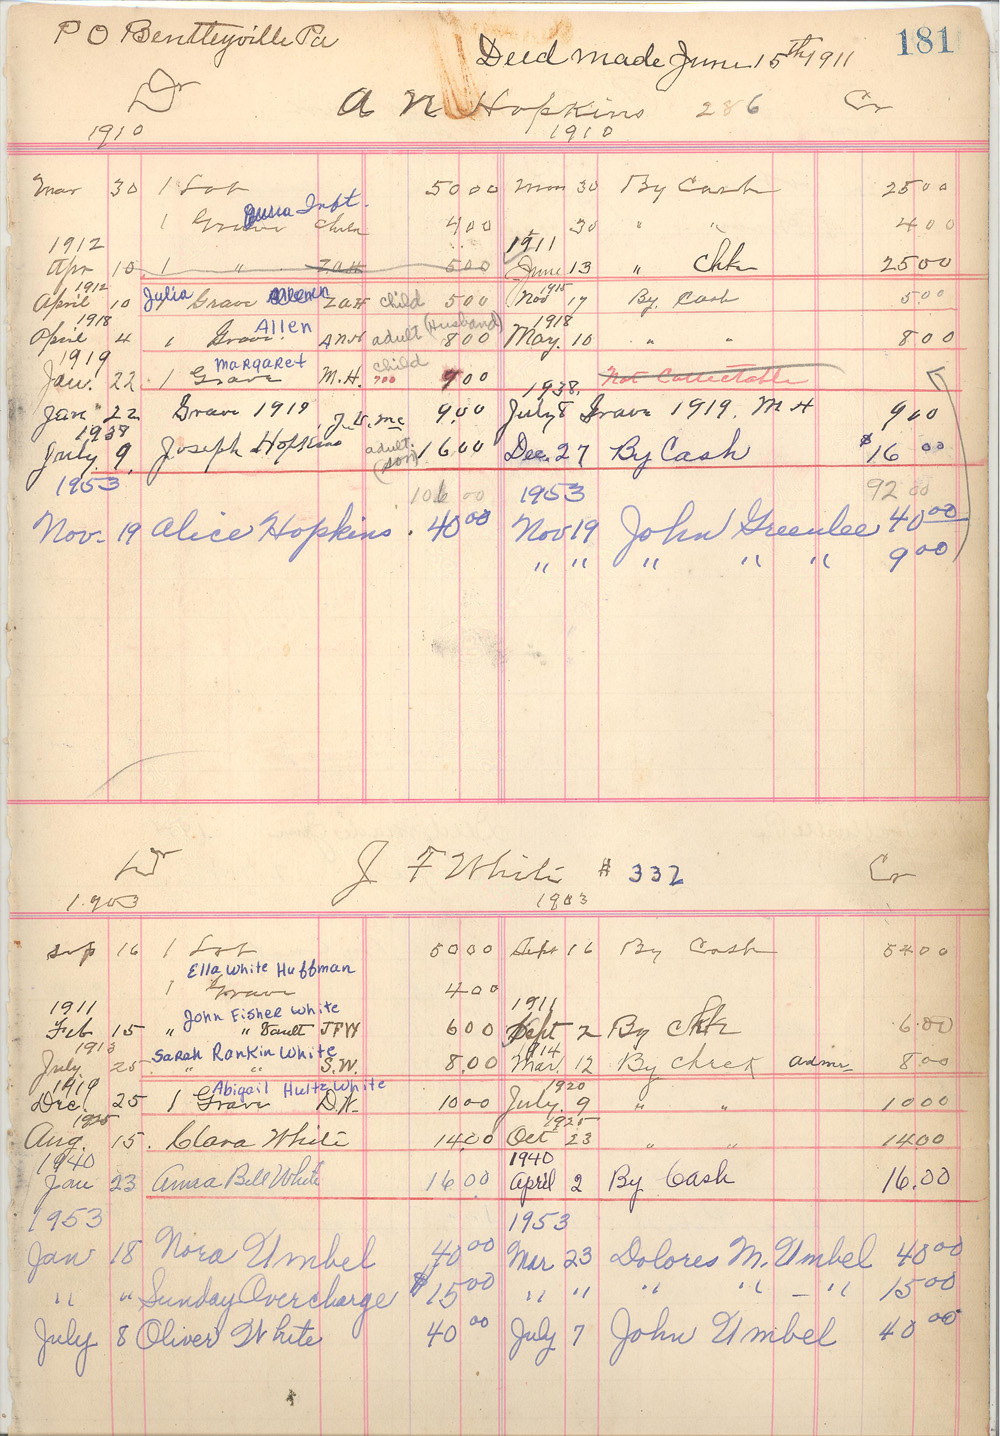 P O Bentleyville Pa
Deed made June 15th 1911
181
Dr A N Hopkins 286 Cr
1910 1910
Mar 30 1 Lot 50 00 Mar 30 By Cash 25 00
Inft.
1 Grave Child 4 00 30 " " 4 00
1912 1911
Apr 10 1 " ZAH 5 00 June 13 " Chk 25 00
1912 1915
April 10 Julia Grave ZAH child 5 00 Nov 17 By Cash 5 00
1918 Allen 1918
April 4 1 Grave ANH adult (Husband) 8 00 May 10 " " 8 00
1919 Margaret child
Jan. 22 1 Grave M.H. 700 9 00 Not Collectable
1938.
Jan 22 Grave 1919 9.00 July 8 Grave 1919. M H 9 00
1938
July 9 Joseph Hopkins adult (son) 16 00 Dec. 27 By Cash $16 00
1953 106 00 1953 92 00
Nov. 19 Alice Hopkins. 40 00 Nov 19 John Greenlee 40 00
" " " " " 9 00
Dr J F White # 332 Cr
1903 1903
Sep 16 1 Lot 50 00 Sept 16 By Cash 54 00
Ella White Huffman
1 Grave 4 00
1911 John Fisher White 1911
Feb 15 " " Vault JFW 6 00 Sept 2 By Chk 6.00
1913 Sarah Rankin White 1914
July 25 " " S.W. 8.00 Mar. 12 By check admr 8.00
1919 Abigail Hultz White 1920
Dec. 25 1 Grave 10 00 July 9 " " 10 00
1925 1925
Aug. 15. Clara White 14.00 Oct 23 " " 14 00
1940 1940
Jan 23 Anna Bell White 16.00 April 2 By Cash 16.00
1953 1953
Jan 18 Nora Umbel 40 00 Mar 23 Dolores M. Umbel 40 00
" " Sunday Overcharge $15 00 " " " " - " 15 00
July 8 Oliver White 40 00 July 7 John Umbel 40 00